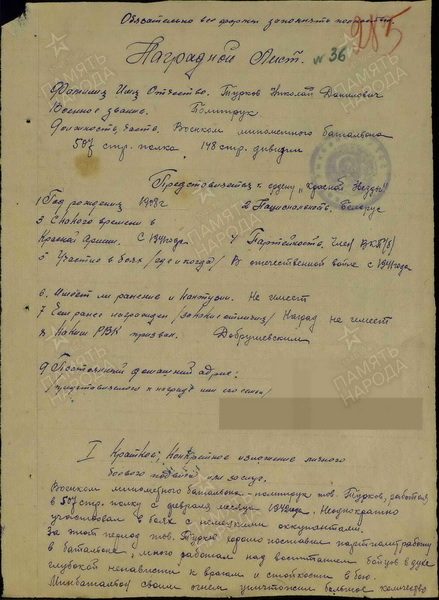 Обязательно все формы заполнять подробно
285
Наградной Лист. №36
Фамилия Имя Отчество. Турков Николай Данилович
Военное звание. Политрук
Должность, часть. Военком минометного батальона
507 стр. полка, 148 стр. дивизии
Представляется к ордену „Красной Звезды"
1 Год рождения 1908 г 2 Национальность. Белорус
3 С какого времени в
Красной Армии. С 1941 года 4 Партейность. член ВКП/б/
5 Участие в боях /где и когда/ В отечественной войне с 1941 года
6. Имеет ли ранение и контузии. Не имеет
7 Чем ранее награжден /за какие отличия/ Наград не имеет
8. Каким РВК призван. Добрушевским
9 Постоянный домашний адрес:
/представляемого к награде или его семьи/
I Краткое, конкретное изложение личного
боевого подвига или заслуг.
Военком минометного батальона – политрук тов. Турков, работая
в 507 стр. полку с февраля месяца 1942 года. Неоднократно
участвовал в боях с немецкими оккупантами.
За этот период тов. Турков хорошо поставил партийную работу
в батальоне, много работал над воспитанием бойцов в духе
глубокой ненависти к врагам и стойкости в бою.
Минбатальон своим огнем уничтожил большое количество
ПАМЯТЬ НАРОДА